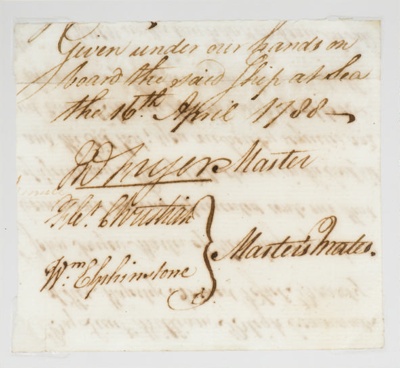 Given under our hands on
board the said Ship at Sea
the 16th. April 1788 –
Jno Fryer Master
Flet. Christian
Wm Elphinstone } Master's mates.